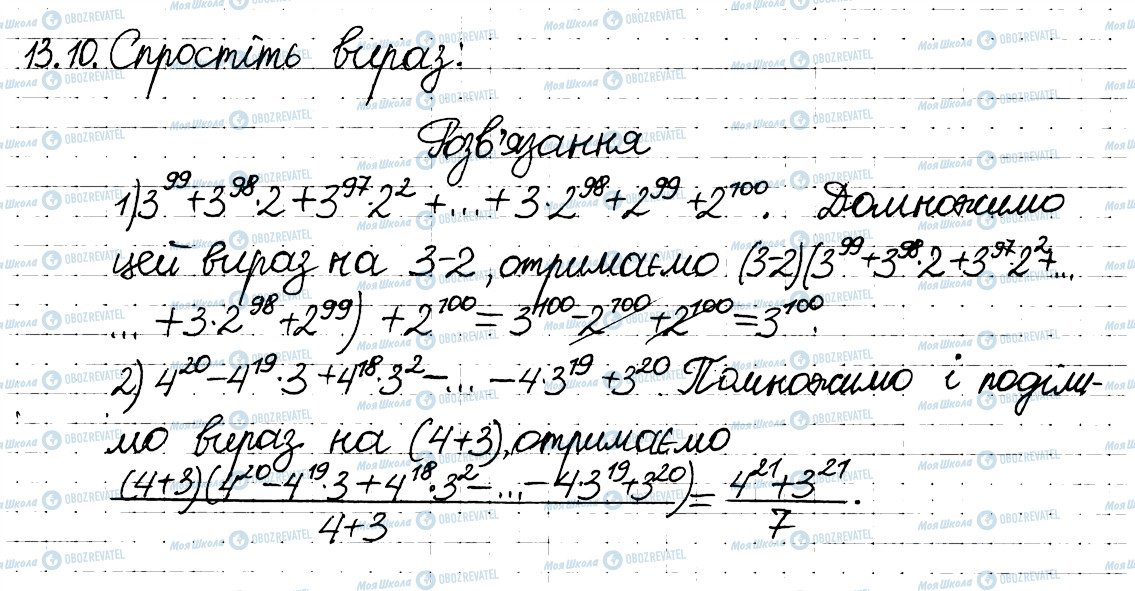 13.10. Спростіть вираз:
Розв'язання
1) 3^99 + 3^98 · 2 + 3^97 · 2^2 + ... + 3 · 2^98 + 2^99 + 2^100. Домножимо
цей вираз на 3-2, отримаємо (3-2)(3^99 + 3^98 · 2 + 3^97 2^2 + ...
... + 3 · 2^98 + 2^99) + 2^100 = 3^100 - 2^100 + 2^100 = 3^100.
2) 4^20 - 4^19 · 3 + 4^18 · 3^2 - ... - 4 · 3^19 + 3^20. Помножимо і поділи-
мо вираз на (4+3), отримаємо
(4+3)(4^20 - 4^19 · 3 + 4^18 · 3^2 - ... - 4 · 3^19 + 3^20) / 4+3 = 4^21 + 3^21 / 7.